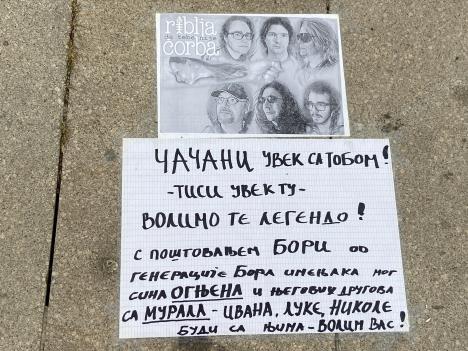 riblja
čorba
ЧАЧАНИ УВЕК СА ТОБОМ!
-ТИ СИ УВЕК ТУ-
ВОЛИМО ТЕ ЛЕГЕНДО!
С ПОШТОВАЊЕМ БОРИ ОД
ГЕНЕРАЦИЈЕ БОРА ИМЕЊАКА МОГ
СИНА ОГЊЕНА И ЊЕГОВИХ ДРУГОВА
СА МУРАЛА - ИВАНА, ЛУКЕ, НИКОЛЕ
БУДИ СА ЊИМА - ВОЛИМ ВАС!